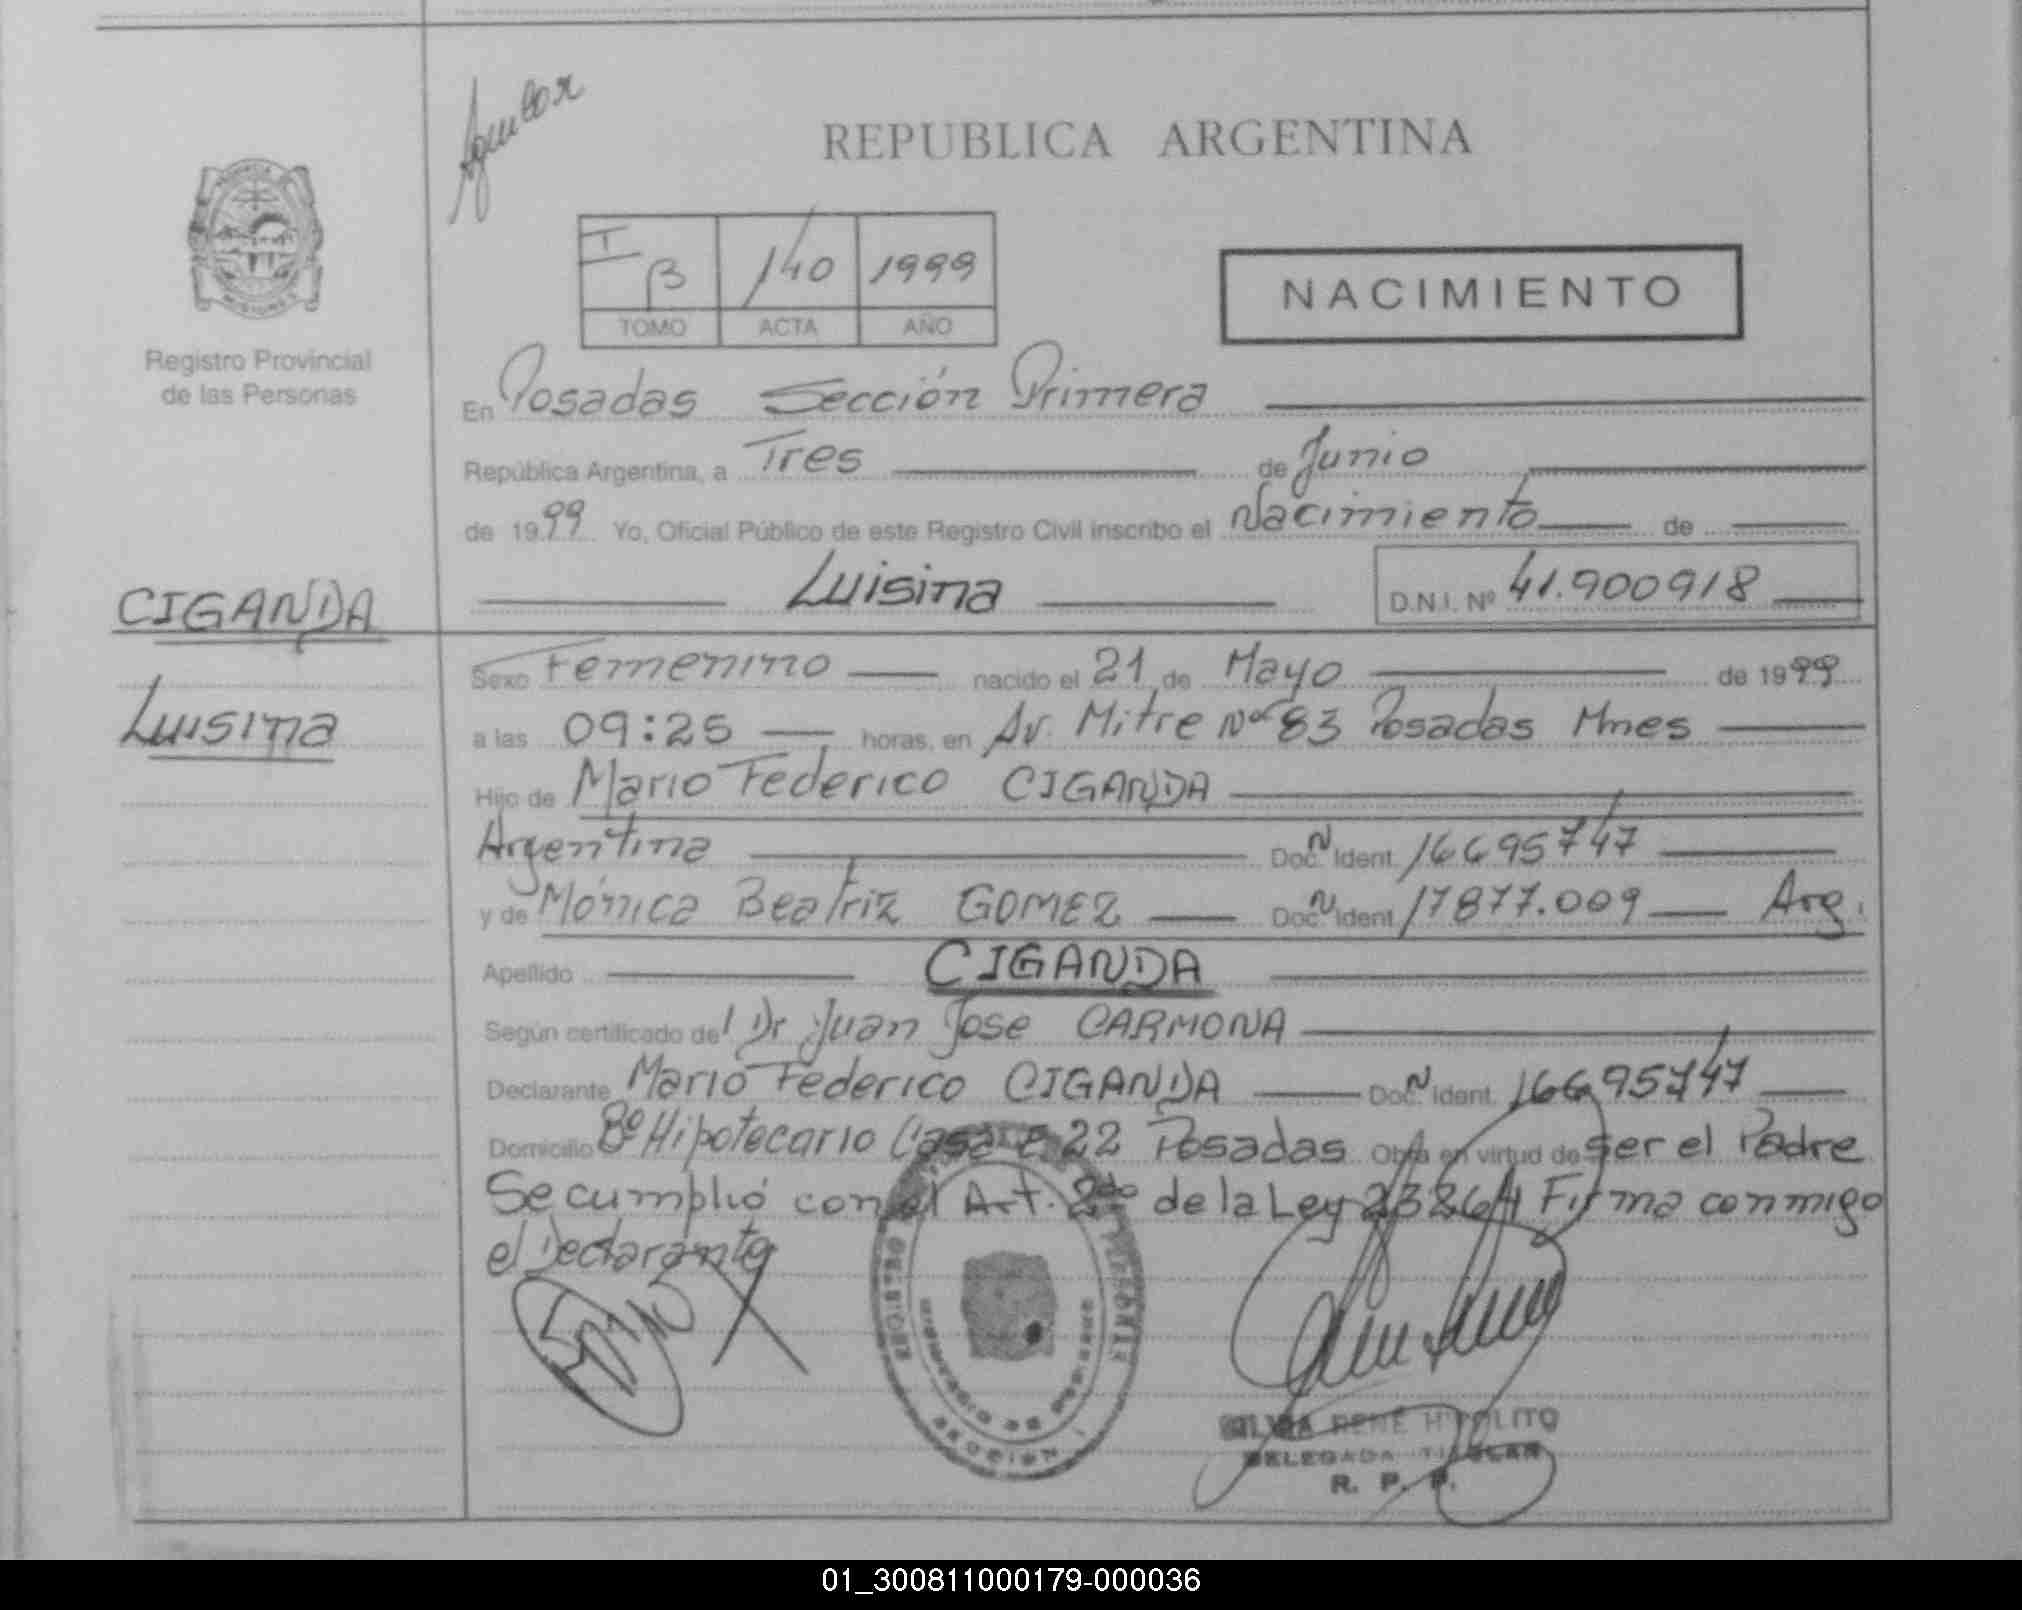 Aguilar
REPUBLICA ARGENTINA
I B 140 1999
TOMO ACTA AÑO
NACIMIENTO
Registro Provincial
de las Personas
En Posadas Sección Primera
República Argentina, a Tres de Junio
de 1999 Yo, Oficial Público de este Registro Civil inscribo el Nacimiento de
Luisina D.N.I. Nº 41.900918
CIGANDA
Luisina
Sexo Femenino nacido el 21 de Mayo de 1999
a las 09:25 horas, en Av. Mitre Nº 83 Posadas Mnes
Hijo de Mario Federico CIGANDA
Argentina Doc. N Ident. 16695747
y de Mónica Beatriz GOMEZ Doc. N Ident. 17877.009 Arg.
Apellido CIGANDA
Según certificado del Dr Juan Jose CARMONA
Declarante Mario Federico CIGANDA Doc. N Ident. 16695747
Domicilio Bº Hipotecario Casa 22 Posadas Obra en virtud de ser el Padre
Se cumplió con el Art. 2do de la Ley 23264 Firma conmigo
el Declarante
SILVIA RENÉ HIPOLITO
DELEGADA TITULAR
R. P. P.
01_300811000179-000036